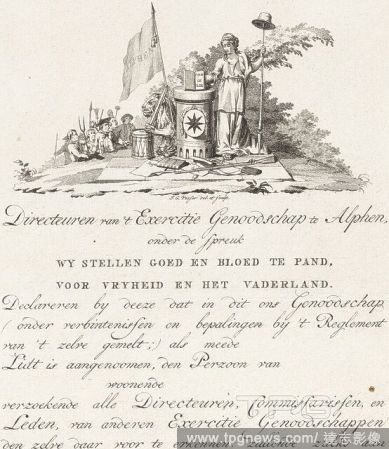 J. G. Visser del. et sculps.
Directeuren van 't Exercitie Genoodschap te Alphen,
onder de spreuk
WY STELLEN GOED EN BLOED TE PAND,
VOOR VRYHEID EN HET VADERLAND.
Declareren by deeze dat in dit ons Genoodschap
( onder verbintenissen en bepalingen by 't Reglement
van 't zelve gemelt ;) als meede
Lidt is aangenoomen, den Perzoon van
woonende
verzoekende alle Directeuren, Commissarissen, en
Leden, van anderen Exercitie Genoodschappen
den zelve daar voor te erkennen,
達志影像
www.tpgnews.com / 達志影像